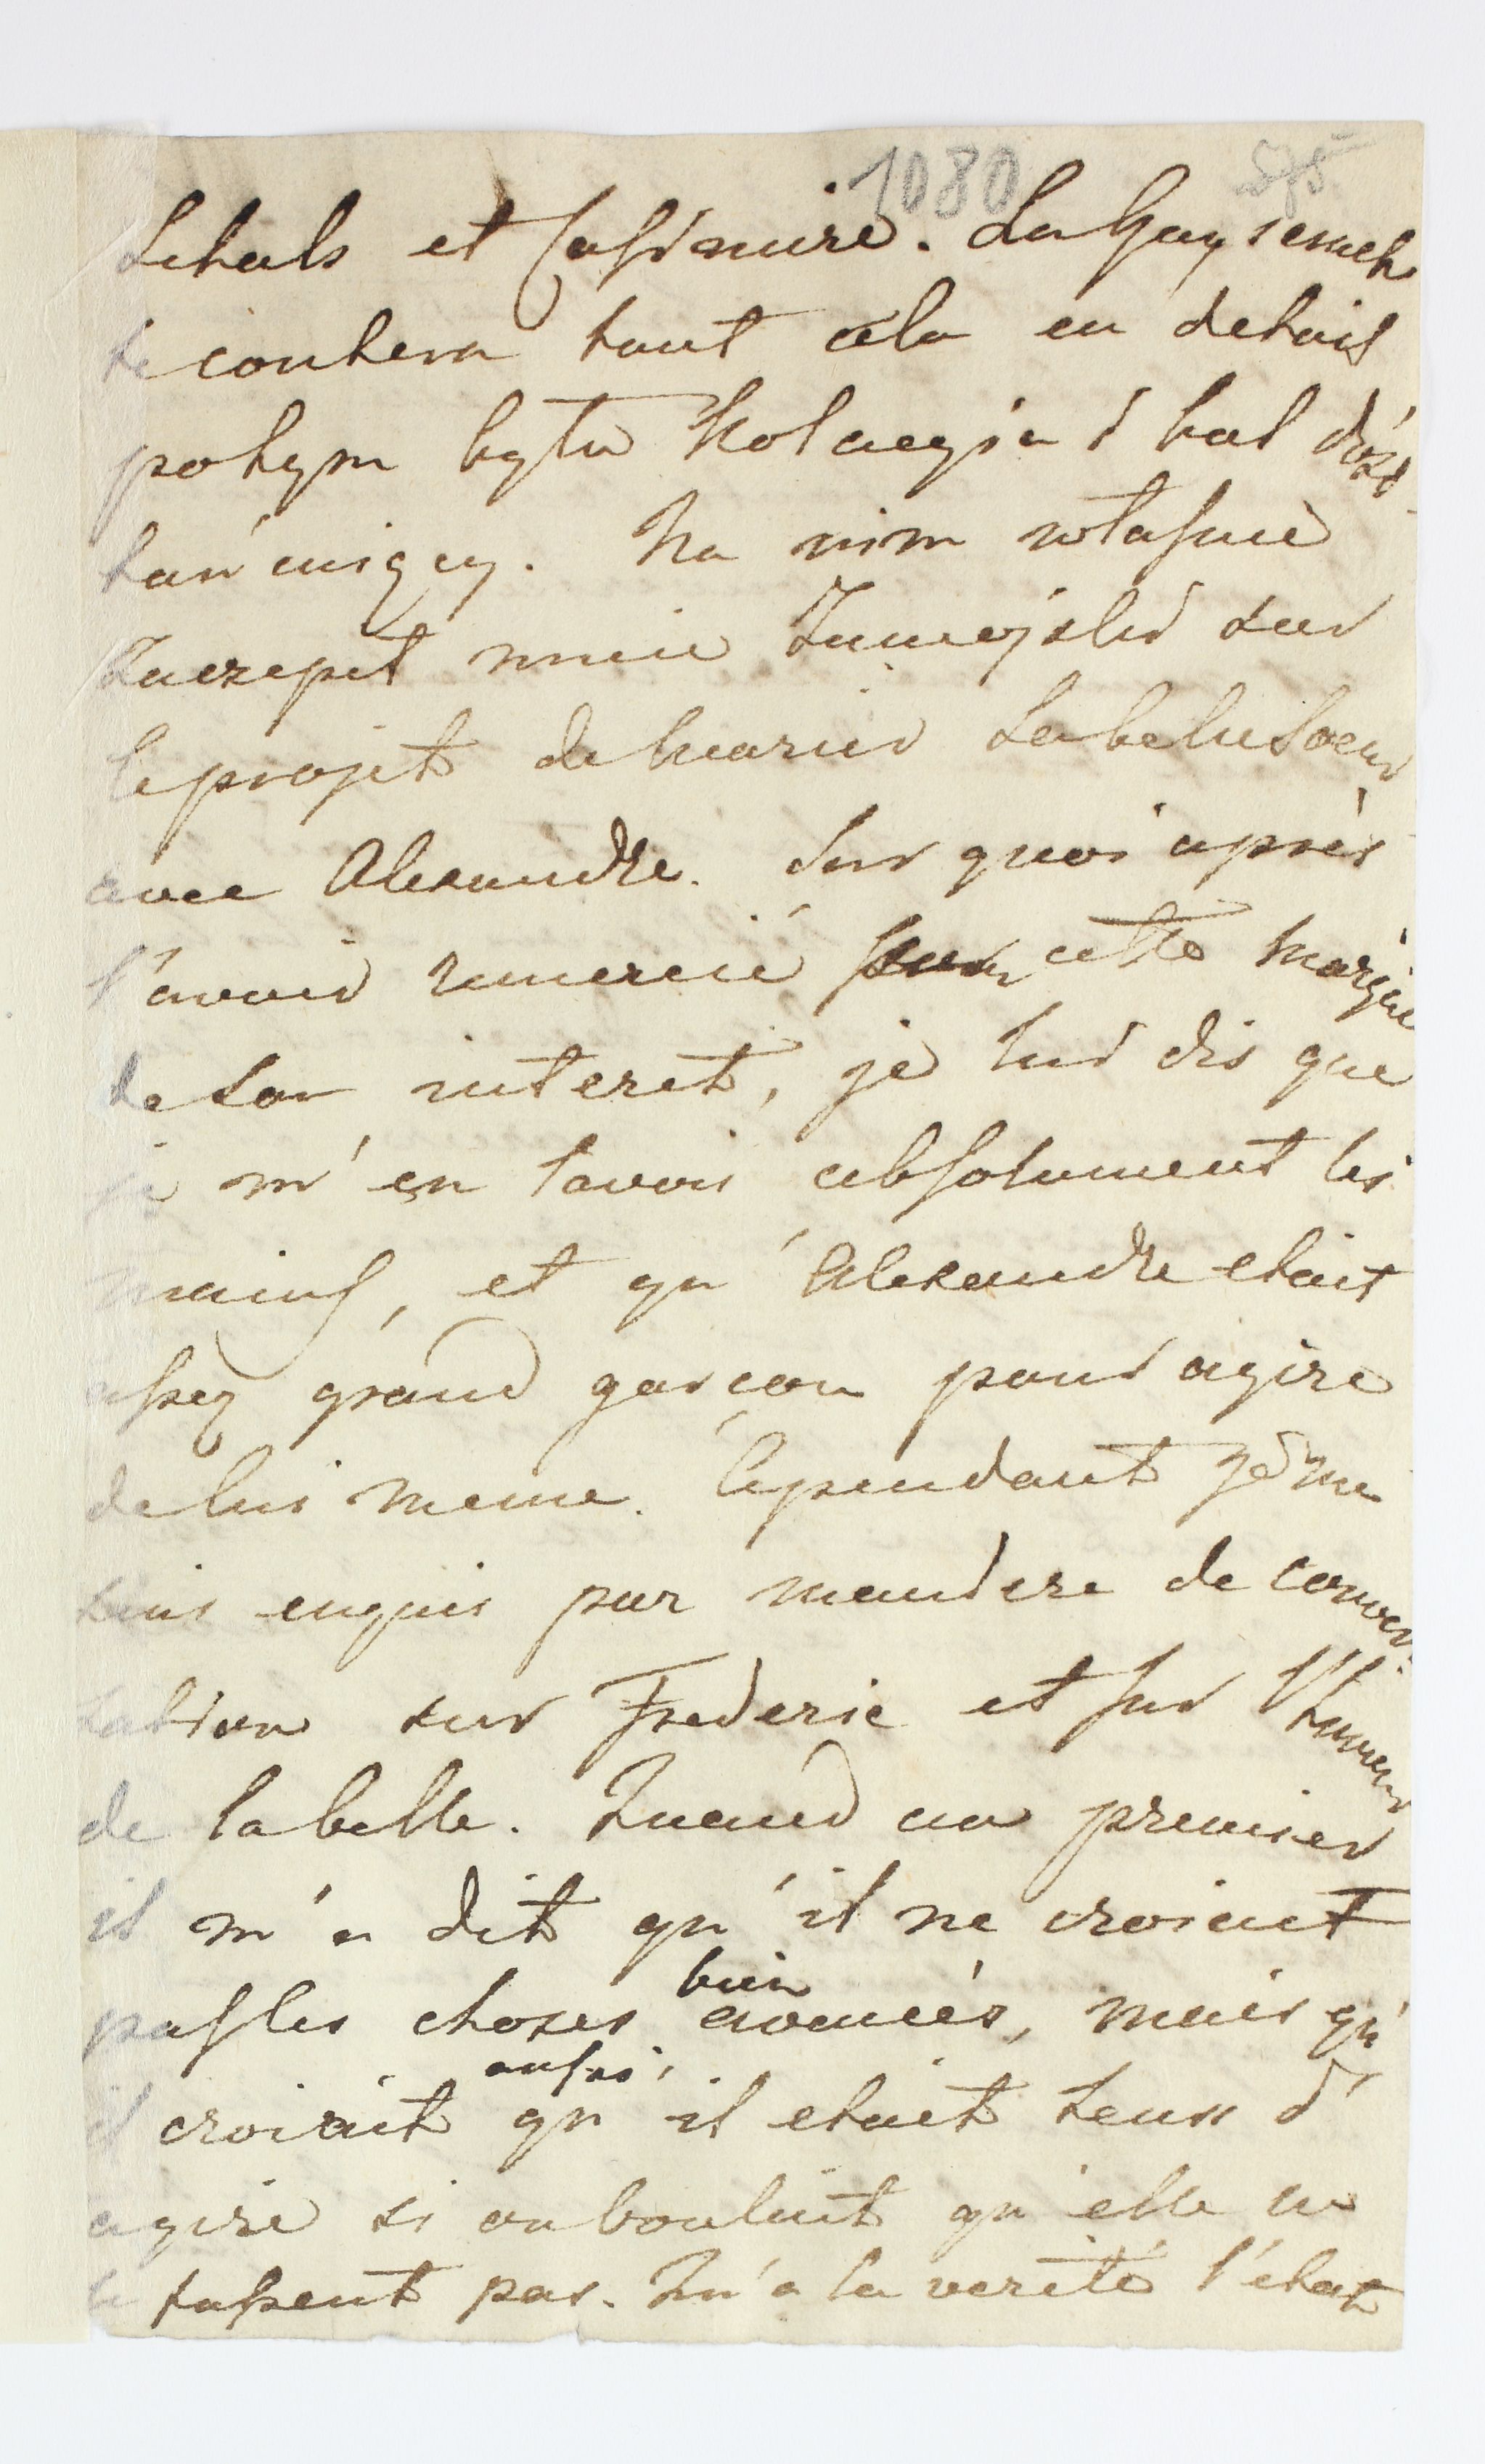 1080 575
Schals et Casimire. La Gay
te contera tout cela en detail
potym byla Kolacyja i bal dość
tań cuiący. Na nim własnie
Zaczepił mnie Zamojski sur
le projet de marier sa belle Soeur
avec Alexandre. Sur quoi après
l'avoir remercié pour cette marque
de son interet, je lui dis que
je m'en lavois absolument les
mains, et qu'Alexandre etait
assez grand garçon pour agire
de lui meme. Cependant je me
suis enquis par maniere de conver-
sation sur Frederic et sur l'humeur
de la belle. Quand au premier
il m'a dit qu'il ne croiait
pas les choses bien avancés, mais qu'
il croiait aussi, qu'il etait tems d'
agire si on vouloit qu'elle ne
le fassent pas. Qu'a la verité l'état